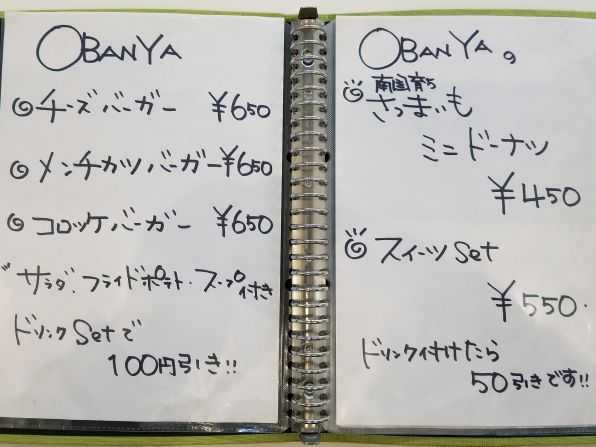 OBANYA
チーズバーガー ¥650
メンチカツバーガー ¥650
コロッケバーガー ¥650
サラダ・フライドポテト・スープ付き
ドリンクSetで
100円引き!!
OBANYAの
南国育ち
さつまいも
ミニドーナツ
¥450
スイーツSet
¥550.
ドリンク付けたら
50引きです!!